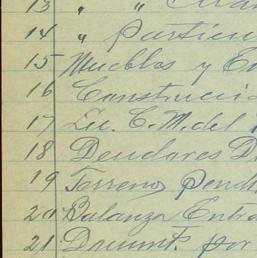 13 " "
14 " Particu
15 Muebles y En
16 Construcci
17 Lu. C. M. del
18 Deudores D
19 Terrenos Pend
20 Balanza Entra
21 Documts. por